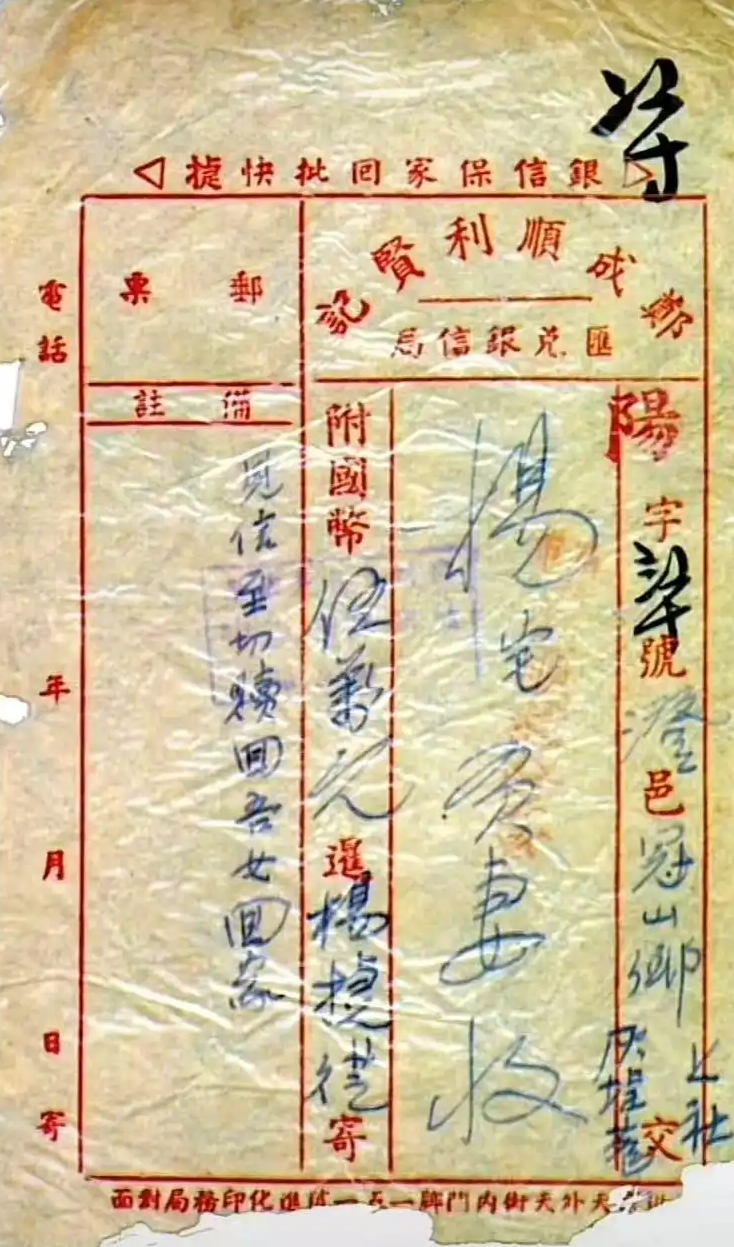 銀信保家回批快捷
鄭成順利賢記
匯兌銀信局
郵票
備註
陽字 號澄邑冠山鄉上社 交
楊宅 妻收
附國幣伍萬元 楊 寄
見信至切贖回吾女回家
電話
年 月 日寄
天外天街内門牌一五一 進化印務局對面